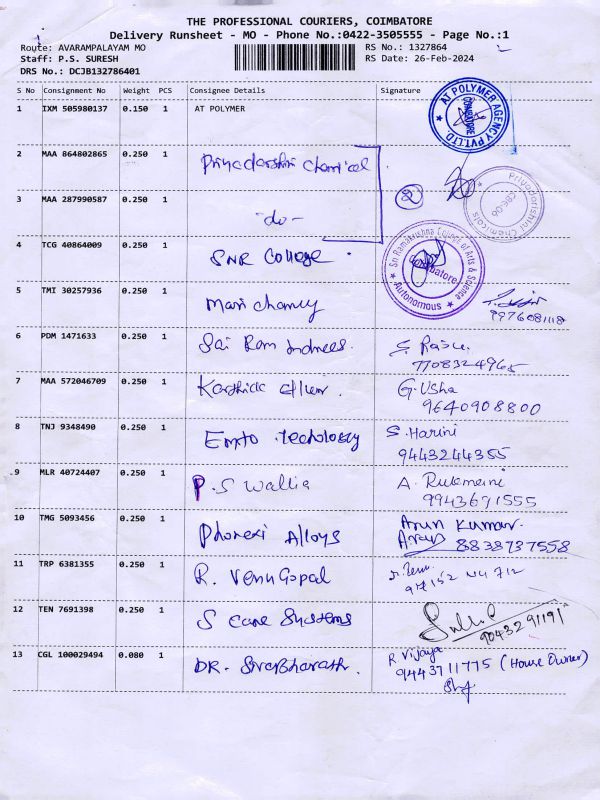 THE PROFESSIONAL COURIERS, COIMBATORE
Delivery Runsheet - MO - Phone No.:0422-3505555 - Page No.:1
Route: AVARAMPALAYAM MO RS No.: 1327864
Staff: P.S. SURESH RS Date: 26-Feb-2024
DRS No.: DCJB132786401
S No Consignment No Weight PCS Consignee Details Signature
1 IXM 505980137 0.150 1 AT POLYMER
AT POLYMER AGENCY PVT.LTD
COIMBATORE
2 MAA 864802865 0.250 1 Priyadarshini Chemical
2
Priyadarshini Chemicals
3 MAA 287990587 0.250 1 -do-
4 TCG 40864009 0.250 1 SNR College
Sri Ramakrishna College of Arts & Science
Coimbatore
Autonomous
5 TMI 30257936 0.250 1
9976081118
6 PDM 1471633 0.250 1 Sai Ram
7708324965
7 MAA 572046709 0.250 1 Karthick G. Usha
9640908800
8 TNJ 9348490 0.250 1 S. Harini
9443244355
9 MLR 40724407 0.250 1 P.S Wallia A.
9943691555
10 TMG 5093456 0.250 1 Alloys Arun Kumar
Arun 8838737558
11 TRP 6381355 0.250 1 R. Venu Gopal
97152 44712
12 TEN 7691398 0.250 1 S Care Systems
9043291191
13 CGL 100029494 0.080 1 DR. SivaBharath. R Vijaya
9443711775 (House Owner)